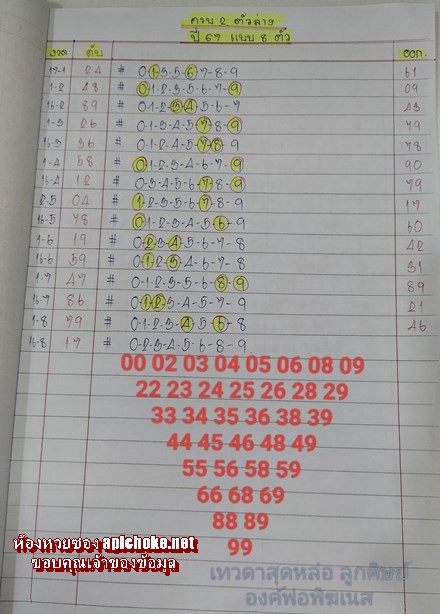 ครบ 2 ตัวล่าง
ปี 67 แบบ 8 ตัว
งวด ดับ ออก.
17-1 24 # 0-1-3-5-6-7-8-9 61
1-2 48 # 0-1-2-3-5-6-7-9 09
16-2 89 # 0-1-2-3-4-5-6-7 43
1-3 26 # 0-1-3-4-5-7-8-9 79
16-3 36 # 0-1-2-4-5-7-8-9 78
1-4 58 # 0-1-2-3-4-6-7-9 90
16-4 12 # 0-3-4-5-6-7-8-9 79
2-5 04 # 1-2-3-5-6-7-8-9 17
16-5 78 # 0-1-2-3-4-5-6-9 60
1-6 19 # 0-2-3-4-5-6-7-8 42
16-6 59 # 0-1-2-3-4-6-7-8 31
1-7 47 # 0-1-2-3-5-6-8-9 89
16-7 86 # 0-1-2-3-4-5-7-9 21
1-8 79 # 0-1-2-3-4-5-6-8 46
16-8 17 # 0-2-3-4-5-6-8-9
00 02 03 04 05 06 08 09
22 23 24 25 26 28 29
33 34 35 36 38 39
44 45 46 48 49
55 56 58 59
66 68 69
88 89
99
ห้องหวยซอง apichoke.net
ขอบคุณเจ้าของข้อมูล
เทวดาสุดหล่อ ลูกศิษย์
องค์พ่อพิฆเนส